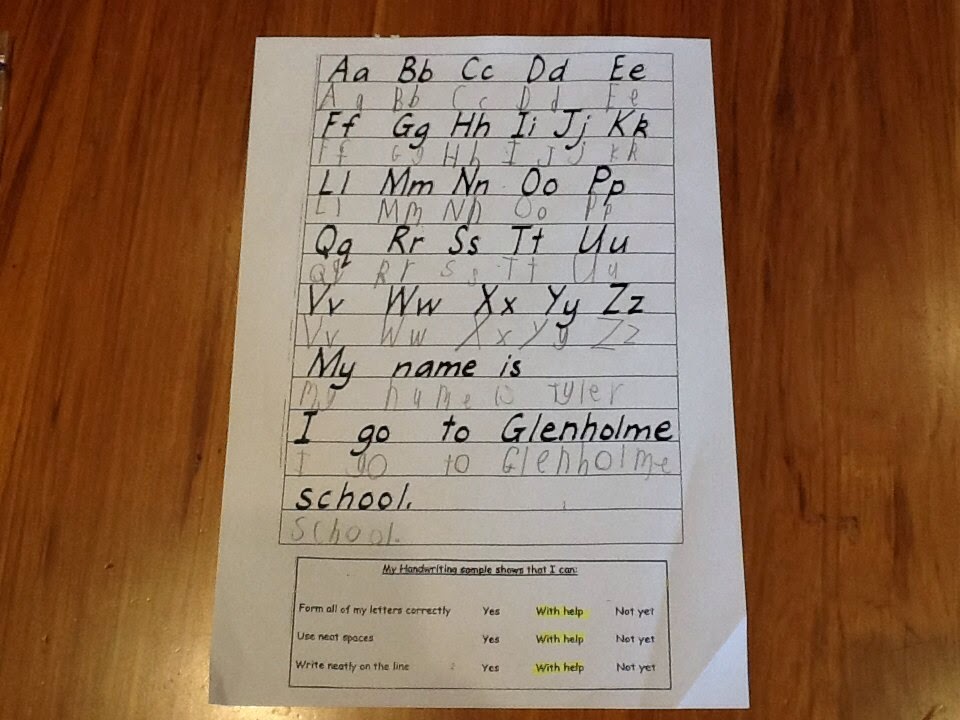 Aa Bb Cc Dd Ee
A a Bb Cc D d Ee
Ff Gg Hh Ii Jj Kk
Ff Gg Hh I J j Kk
Ll Mm Nn Oo Pp
Ll Mm Nn Oo Pp
Qq Rr Ss Tt Uu
Qq Rr Ss Tt Uu
Vv Ww Xx Yy Zz
Vv Ww Xx Yy Zz
My name is
My name is Tyler
I go to Glenholme
I go to Glenholme
school.
School.
My Handwriting sample shows that I can:
Form all of my letters correctly Yes With help Not yet
Use neat spaces Yes With help Not yet
Write neatly on the line Yes With help Not yet